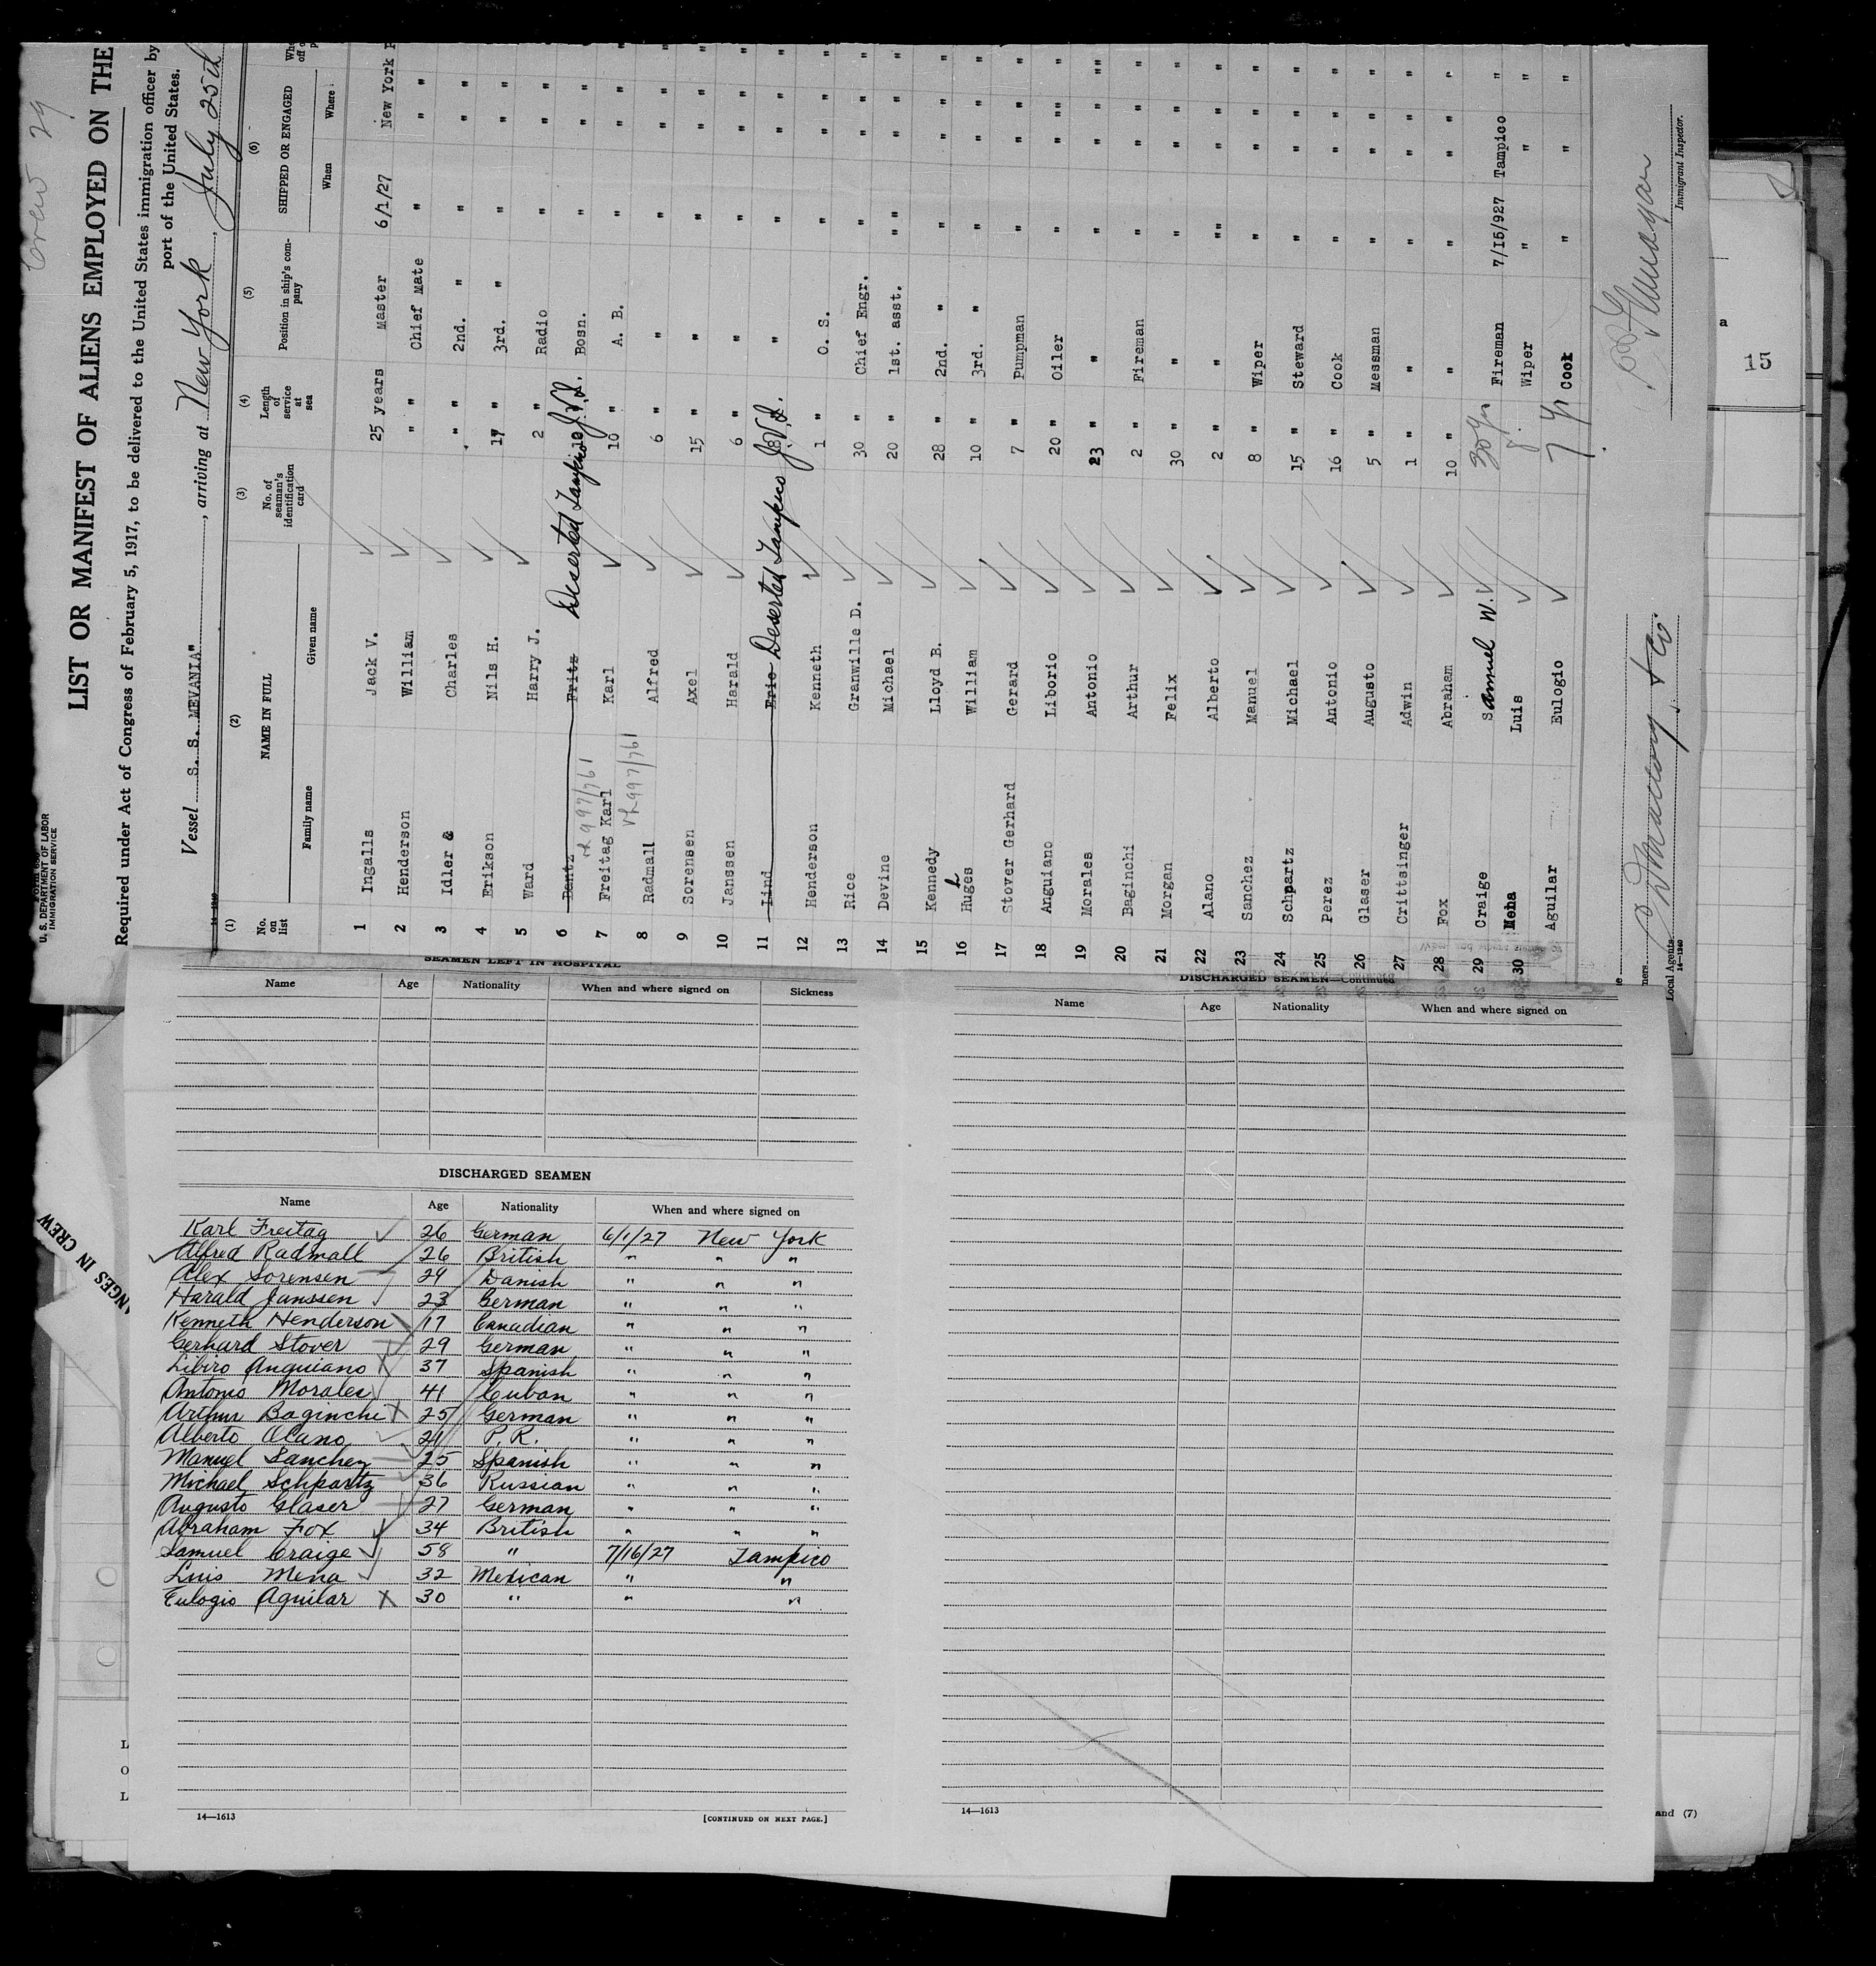 Crew 29
LIST OR MANIFEST OF ALIENS EMPLOYED ON THE
Required under Act of Congress of February 5, 1917, to be delivered to the United States immigration officer by
port of the United States.
U. S. DEPARTMENT OF LABOR
IMMIGRATION SERVICE
Vessel S. S. MEVANIA", arriving at New York, July 25th
14—1240
(1) (2) (3) (4) (5) (6)
No. on list NAME IN FULL No. of seaman's identification card Length of service at sea Position in ship's company SHIPPED OR ENGAGED
Family name Given name When Where
1 Ingalls Jack V. 25 years Master 6/1/27 New York
2 Henderson William " " Chief Mate " "
3 Idler & Charles " " 2nd. " " "
4 Erikson Nils H. 17 " 3rd. " " "
5 Ward Harry J. 2 " Radio " "
6 Dentz Fritz Deserted Tampico J.V.I. Bosn. " "
7 Freitag Karl Karl 10 " A. B. " "
8 Radmall Alfred 6 " " " "
9 Sorensen Axel 15 " " " "
10 Janssen Harald 6 " " " "
11 Lind Eric Deserted Tampico J.V.I. " " "
12 Henderson Kenneth 1 " O. S. " "
13 Rice Granwille D. 30 " Chief Engr. " "
14 Devine Michael 20 " 1st. asst. " "
15 Kennedy Lloyd B. 28 " 2nd. " " "
16 Huges h William 10 " 3rd. " " "
17 Stover Gerhard Gerard 7 " Pumpman " "
18 Anguiano Liborio 20 " Oiler " "
19 Morales Antonio 23 " " " "
20 Baginchi Arthur 2 " Fireman " "
21 Morgan Felix 30 " " " "
22 Alano Alberto 2 " " " "
23 Sanchez Manuel 8 " Wiper " "
24 Schpartz Michael 15 " Steward " "
25 Perez Antonio 16 " Cook " "
26 Glaser Augusto 5 " Messman " "
27 Crittsinger Adwin 1 " " " "
28 Fox Abraham 10 " " " "
29 Craige Samuel W. 30 yrs Fireman 7/15/927 Tampico
30 Mena Luis Wiper " "
Aguilar Eulogio 7 Yr Cook " "
Immigrant Inspector.
Local Agents
14—1240
15
SEAMEN LEFT IN HOSPITAL
Name Age Nationality When and where signed on Sickness
DISCHARGED SEAMEN
Name Age Nationality When and where signed on
Karl Freitag 26 German 6/1/27 New York
Alfred Radmall 26 British " " "
Alex Sorensen 29 Danish " " "
Harald Janssen 23 German " " "
Kenneth Henderson 17 Canadian " " "
Gerhard Stover 29 German " " "
Libiro Anguiano 37 Spanish " " "
Antonio Morales 41 Cuban " " "
Arthur Baginchi 25 German " " "
Alberto Olano 21 P. R. " " "
Manuel Sanchez 25 Spanish " " "
Michael Schpartz 36 Russian " " "
Augusto Glaser 27 German " " "
Abraham Fox 34 British " " "
Samuel Craige 58 " 7/16/27 Tampico
Luis Mena 32 Mexican " "
Eulogio Aguilar 30 " " "
14—1613
[CONTINUED ON NEXT PAGE.]
DISCHARGED SEAMEN—Continued
Name Age Nationality When and where signed on
14—1613
NGES IN CREW
and (7)